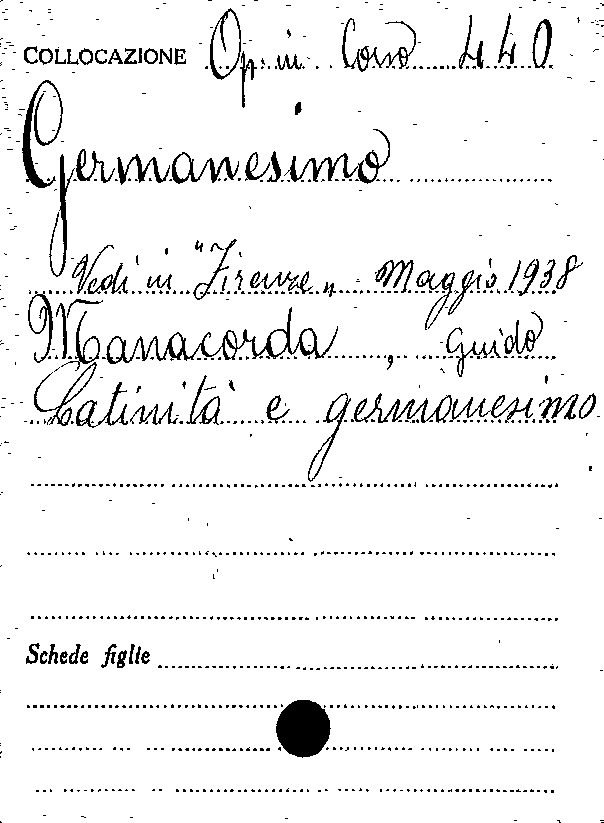 COLLOCAZIONE Op. in Corso 440
Germanesimo
Vedi in "Firenze„ Maggio 1938
Manacorda, Guido
Latinità e germanesimo
Schede figlie